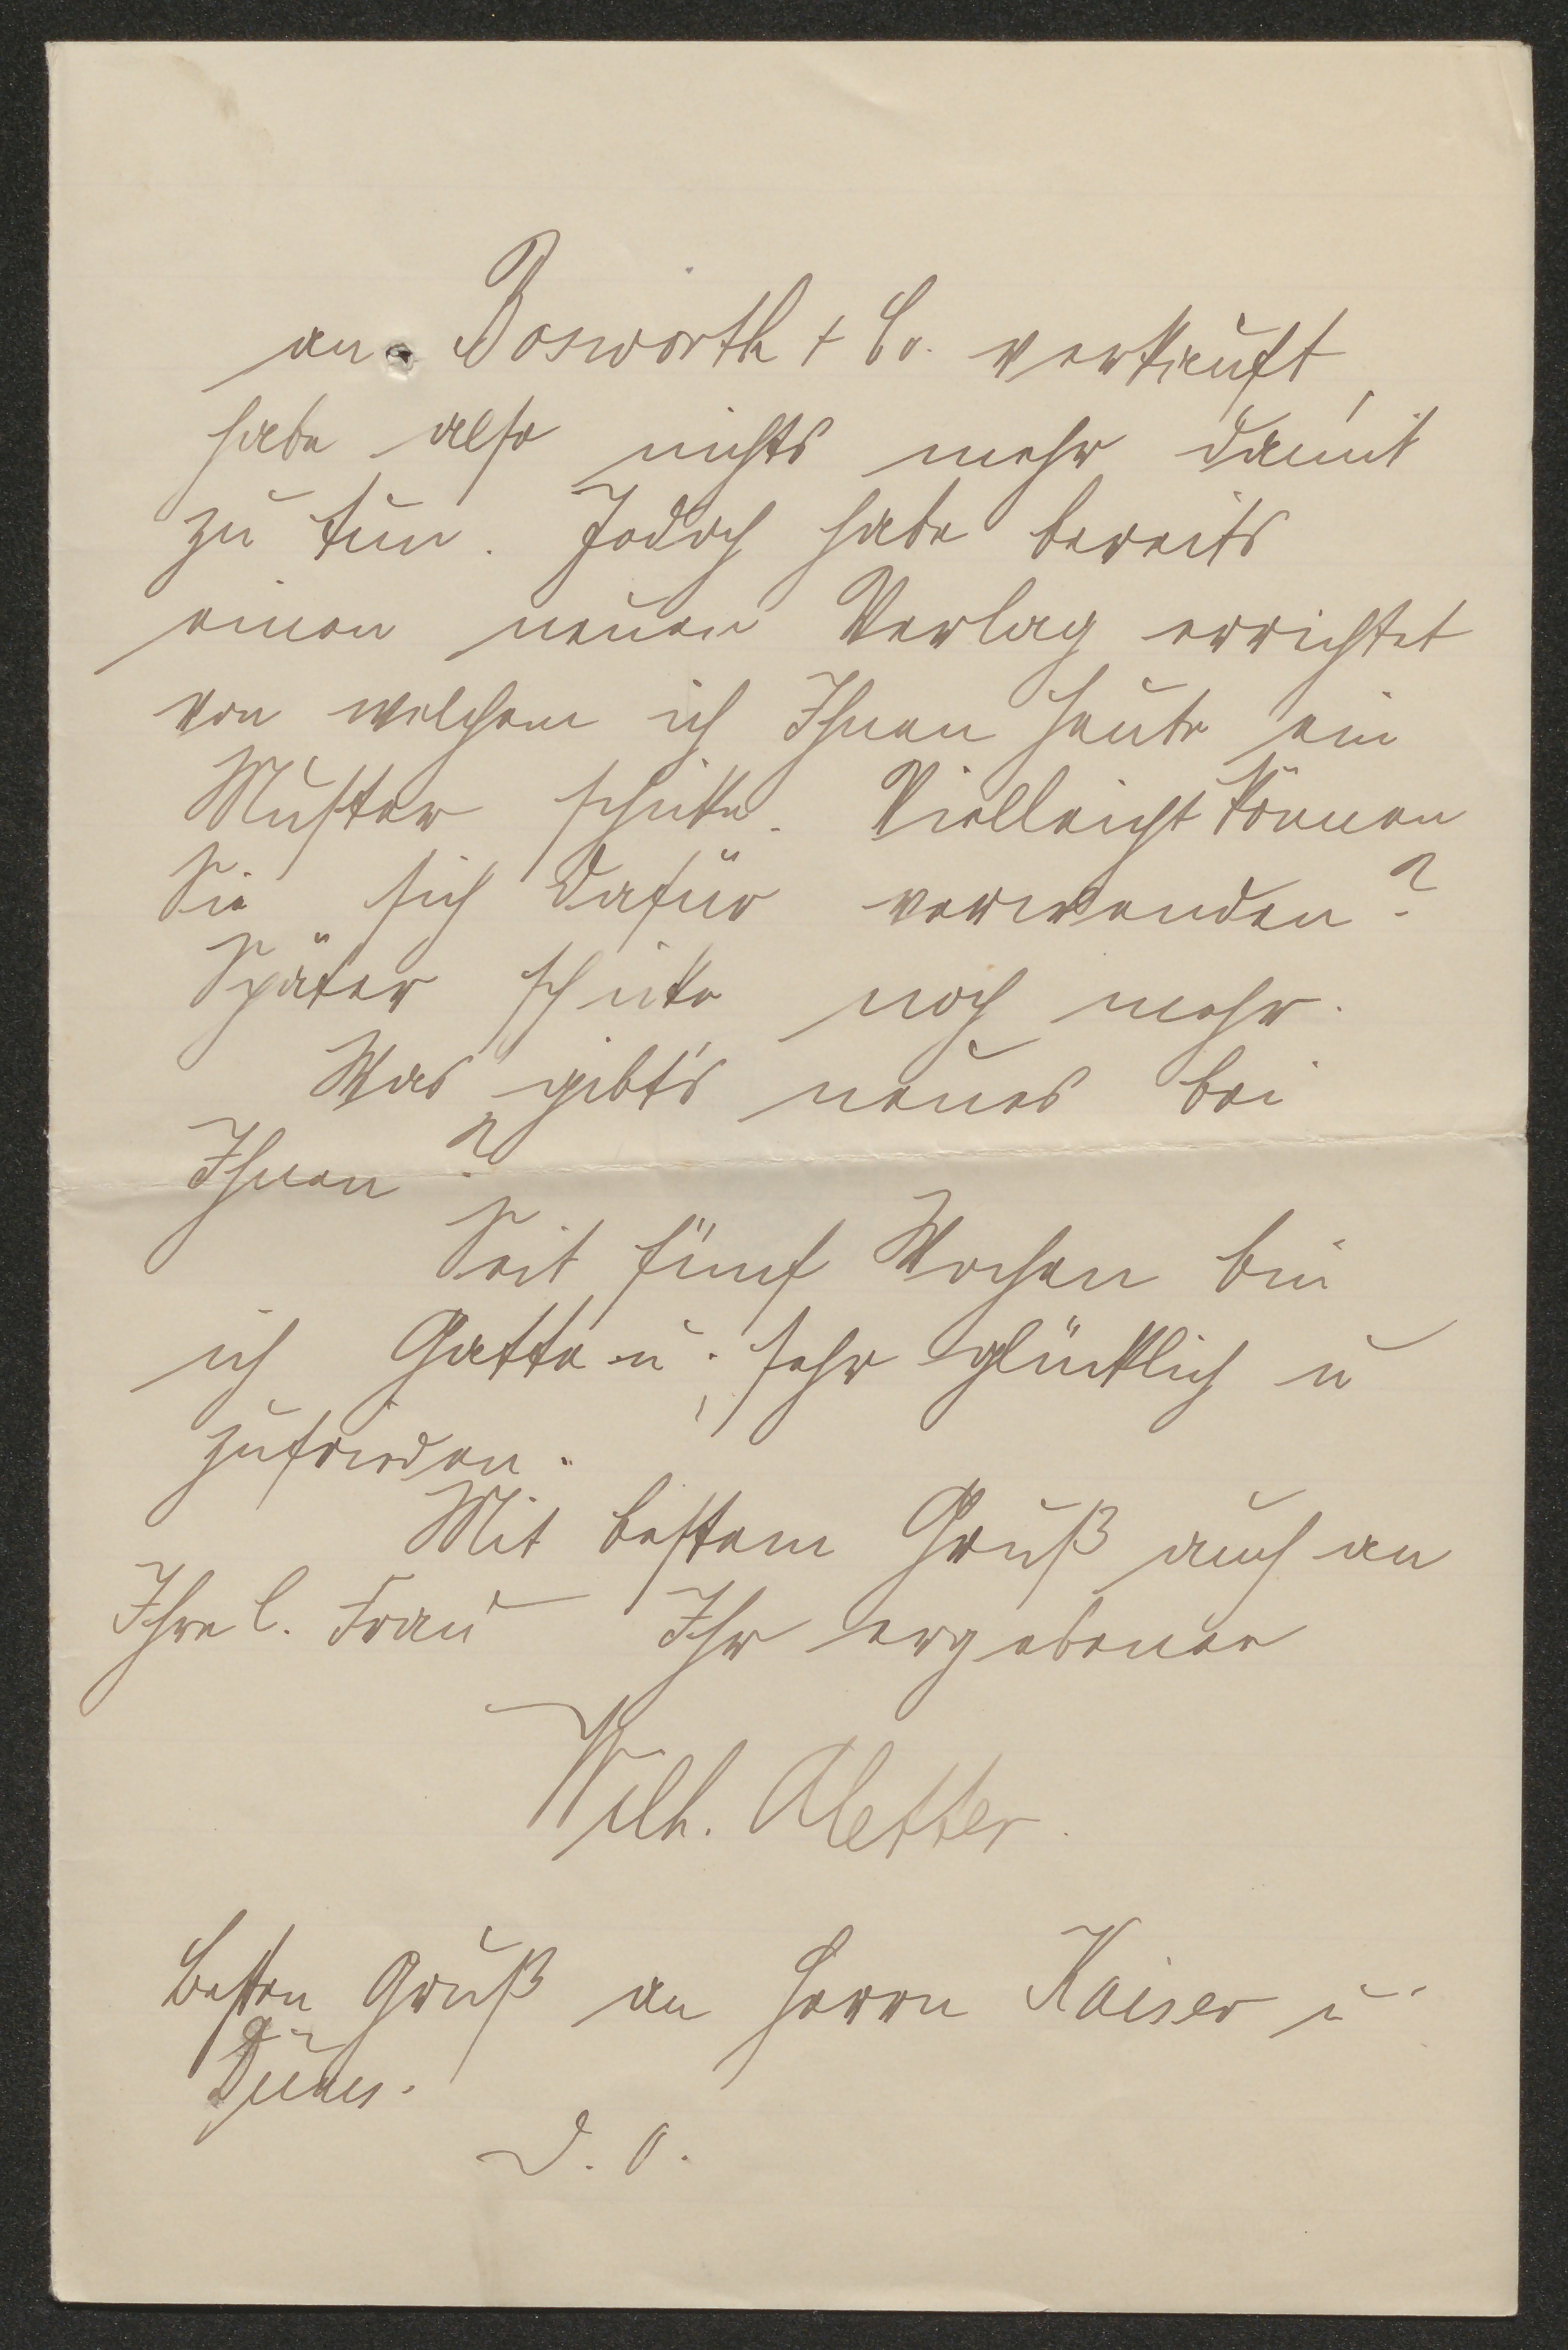 an Bosworth + Co. verkauft,
habe also nichts mehr damit
zu tun. Jedoch habe bereits
einen neuen Verlag errichtet
von welchem ich Ihnen heute ein
Muster schicke. Vielleicht können
Sie sich dafür verwenden?
Später schicke noch mehr.
Was gibt's neues bei
Ihnen?
Seit fünf Wochen bin
ich Gatte u. sehr glücklich u
zufrieden.
Mit bestem Gruß auch an
Ihre l. Frau Ihr ergebener
Wilh. Aletter.
Besten Gruß an Herrn Kaiser u
D. O.